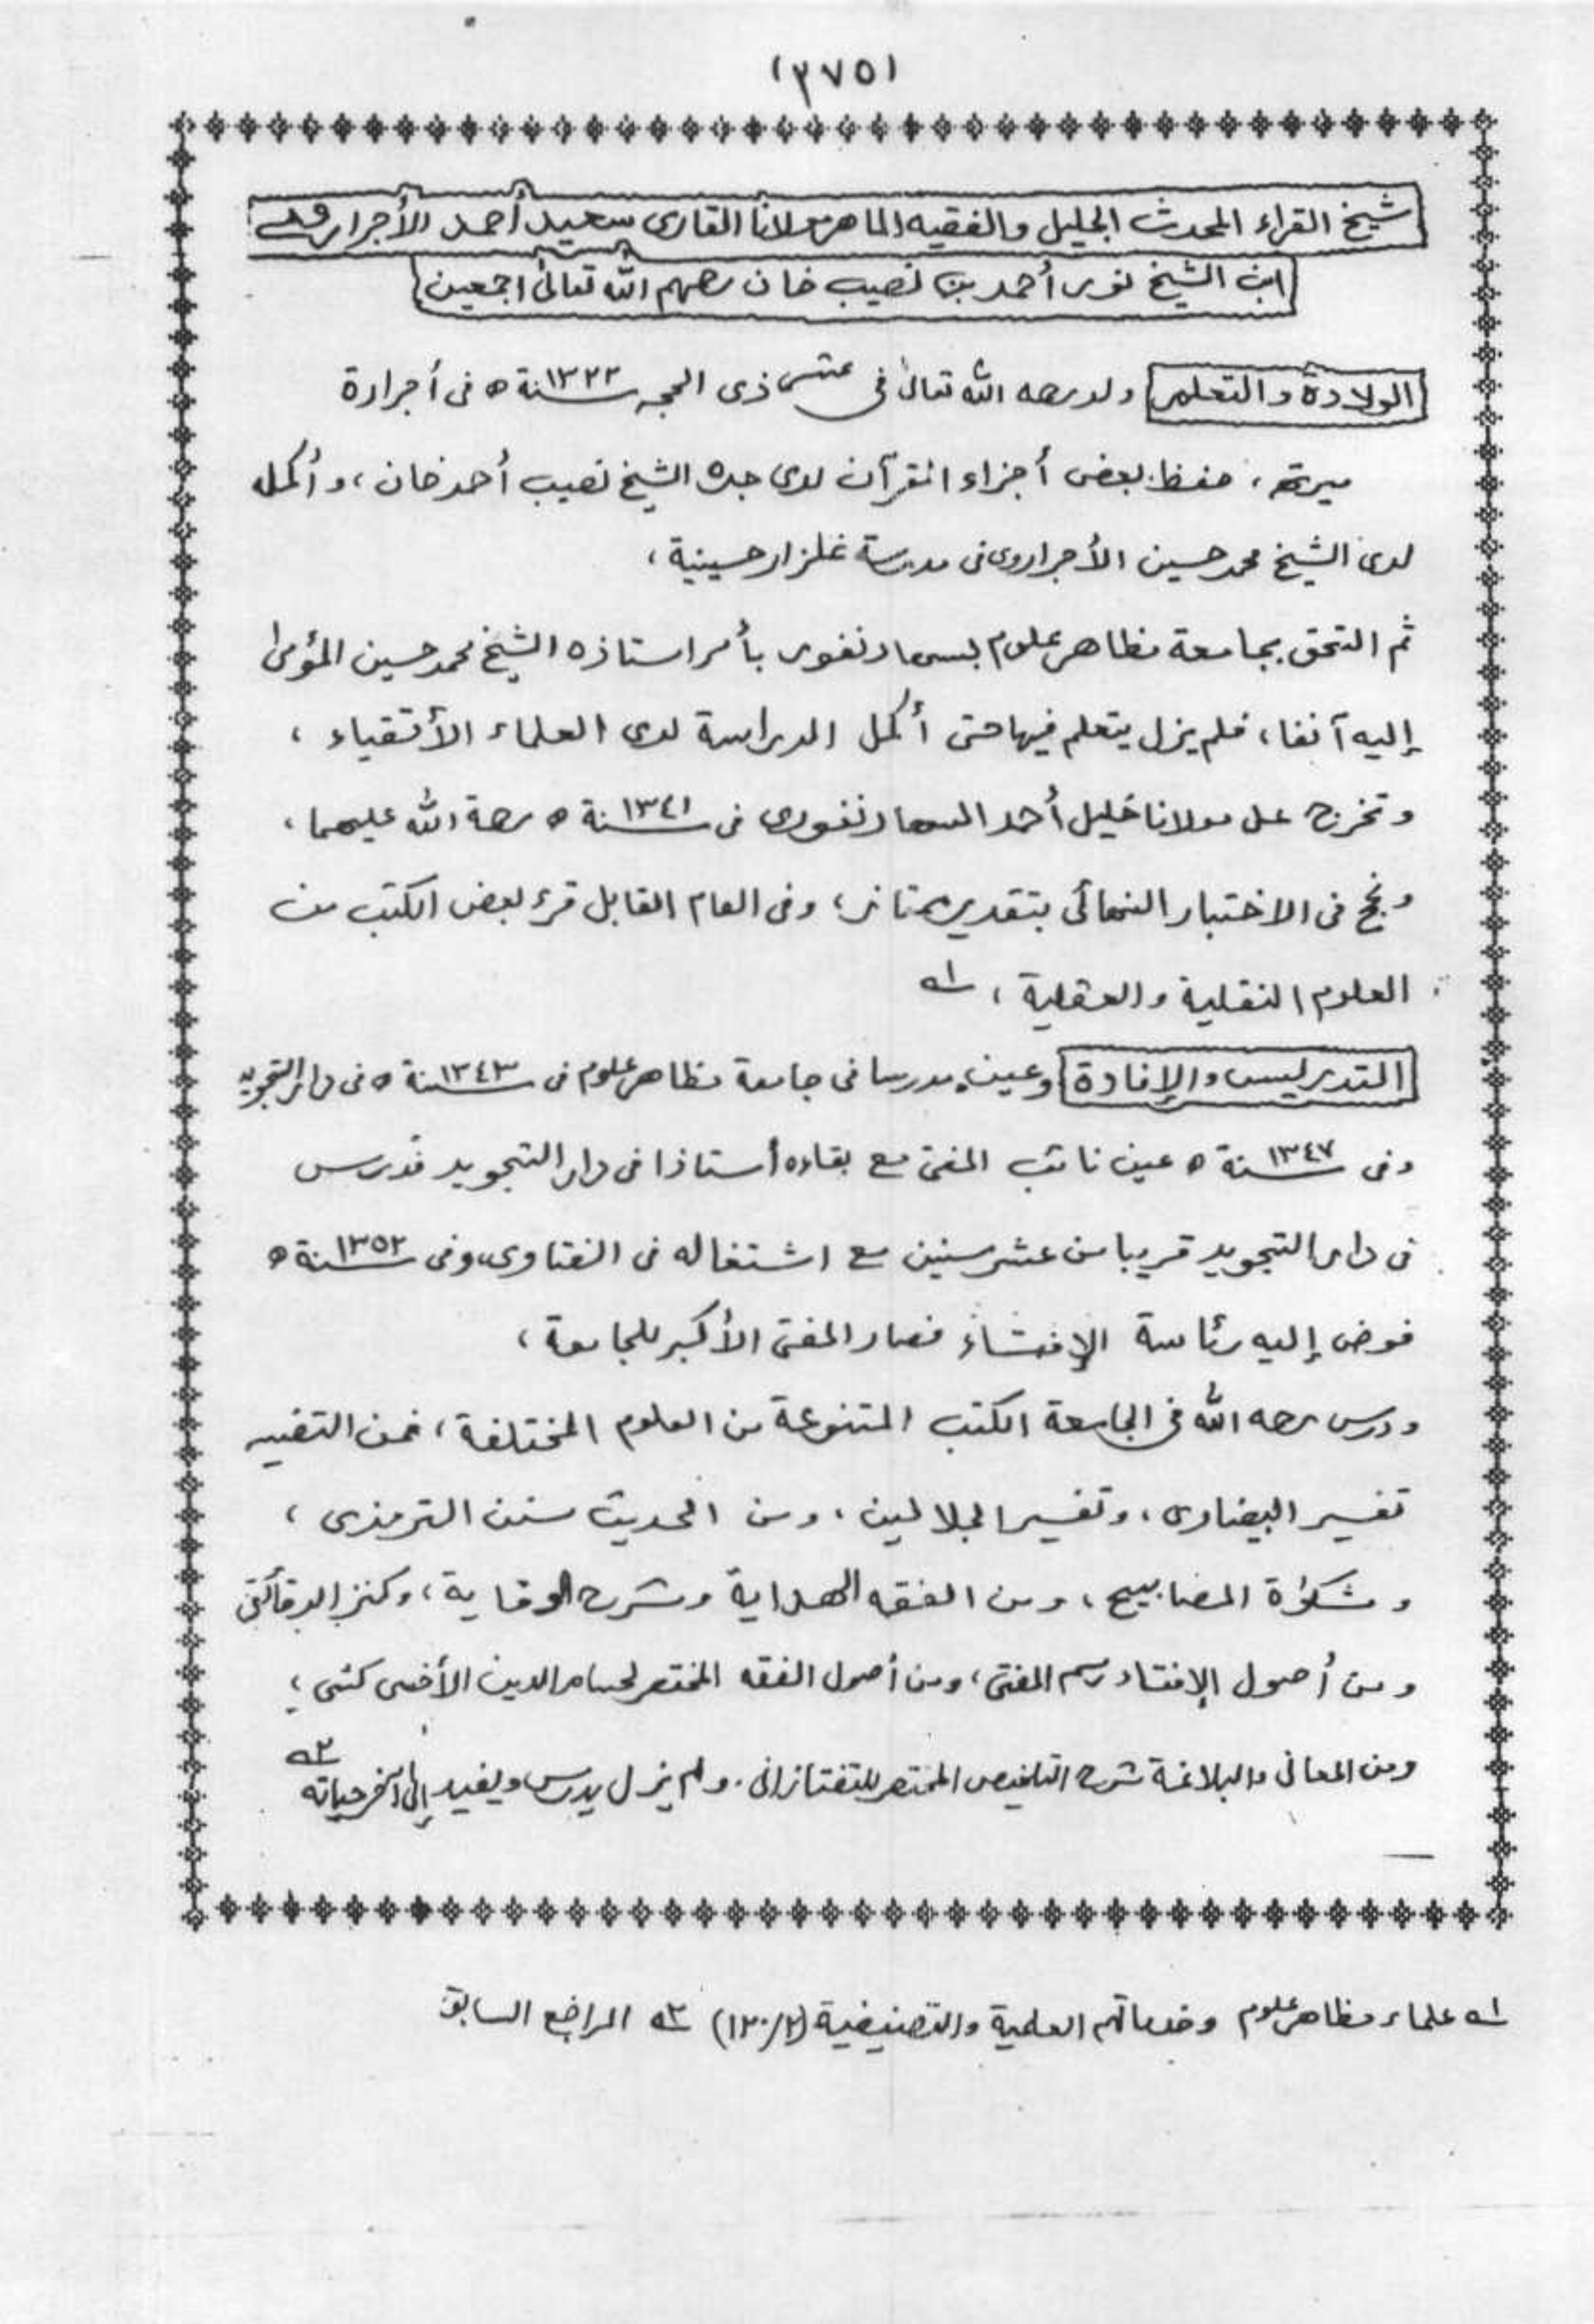 (٢٧٥)
شيخ القراء المحدث الجليل والفقيه الماهر مولانا القارى سعيد أحمد الأجراروى
ابن الشيخ نور أحمد بن نصيب خان رحمهم الله تعالىٰ اجمعين
الولادة والتعلم ولد رحمه الله تعالىٰ فى عشر ذى الحجه سنة ١٣٢٢ ه فى أجرارة
ميرته، حفظ بعض أجزاء القرآن لدى جده الشيخ نصيب أحمد خان، وأكمله
لدى الشيخ محمد حسين الأجراروى فى مدرسة غلزار حسينية،
ثم التحق بجامعة مظاهر علوم بسهارنفور بأمر استاذه الشيخ محمد حسين المؤمل
إليه آنفا، فلم يزل يتعلم فيها حتى أكمل الدراسة لدى العلماء الأتقياء،
وتخرج على مولانا خليل أحمد السهارنفورى فى سنة ١٣٤١ ه رحمة الله عليهما،
ونجح فى الاختبار النهائى بتقدير ممتاز، وفى العام القابل قرء بعض الكتب من
العلوم النقلية والعقلية، ١ـه
التدريس والإفادة وعين مدرسا فى جامعة مظاهر علوم فى سنة ١٣٤٣ ه فى دار التجويد
وفى سنة ١٣٤٧ ه عين نائب المفتى مع بقاءه أستاذا فى دار التجويد فدرس
فى دار التجويد قريبا من عشر سنين مع اشتغاله فى الفتاوى، وفى سنة ١٣٥٢ ه
فوض إليه رئاسة الإفتاء فصار المفتى الأكبر للجامعة،
ودرس رحمه الله فى الجامعة الكتب المتنوعة من العلوم المختلفة، فمن التفسير
تفسير البيضاوى، وتفسير الجلالين، ومن الحديث سنن الترمذى،
ومشكوٰة المصابيح، ومن الفقه الهداية وشرح الوقاية، وكنز الدقائق
ومن أصول الإفتاء رسم المفتى، ومن أصول الفقه المختصر لحسام الدين الأخسى كثى؛
ومن المعانى والبلاغة شرح التلخيص المختصر للتفتازانى. ولم يزل يدرس ويفيد إلى آخر حياته ٢ـه
١ـه علماء مظاهر علوم وخدماتهم العلمية والتصنيفية (١٣٠/٢) ٢ـه المراجع السابق